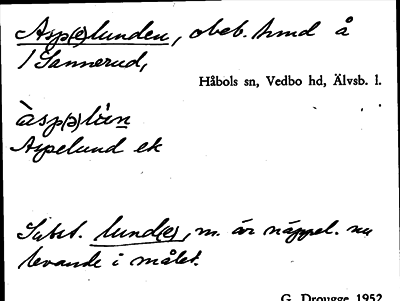 Asp(e)lunden, obeb. hmd å
1 Sannerud,
Håbols sn, Vedbo hd, Älvsb. l.
àsp(ə)lùn
Aspelund ek
Subst. lund(e), m. är näppel. nu
levande i målet.
G. Drougge 1952